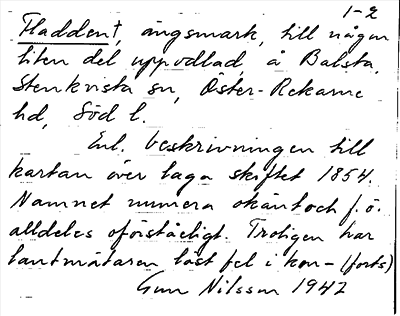 1-2
Fladden†, ängsmark, till någon
liten del uppodlad, å Balsta,
Stenkvista sn, Öster-Rekarne
hd, Söd l.
Enl. beskrivningen till
kartan över laga skiftet 1854.
Namnet numera okänt och f. ö.
alldeles oförståeligt. Troligen har
lantmätaren läst fel i kon- (forts)
Gun Nilsson 1947